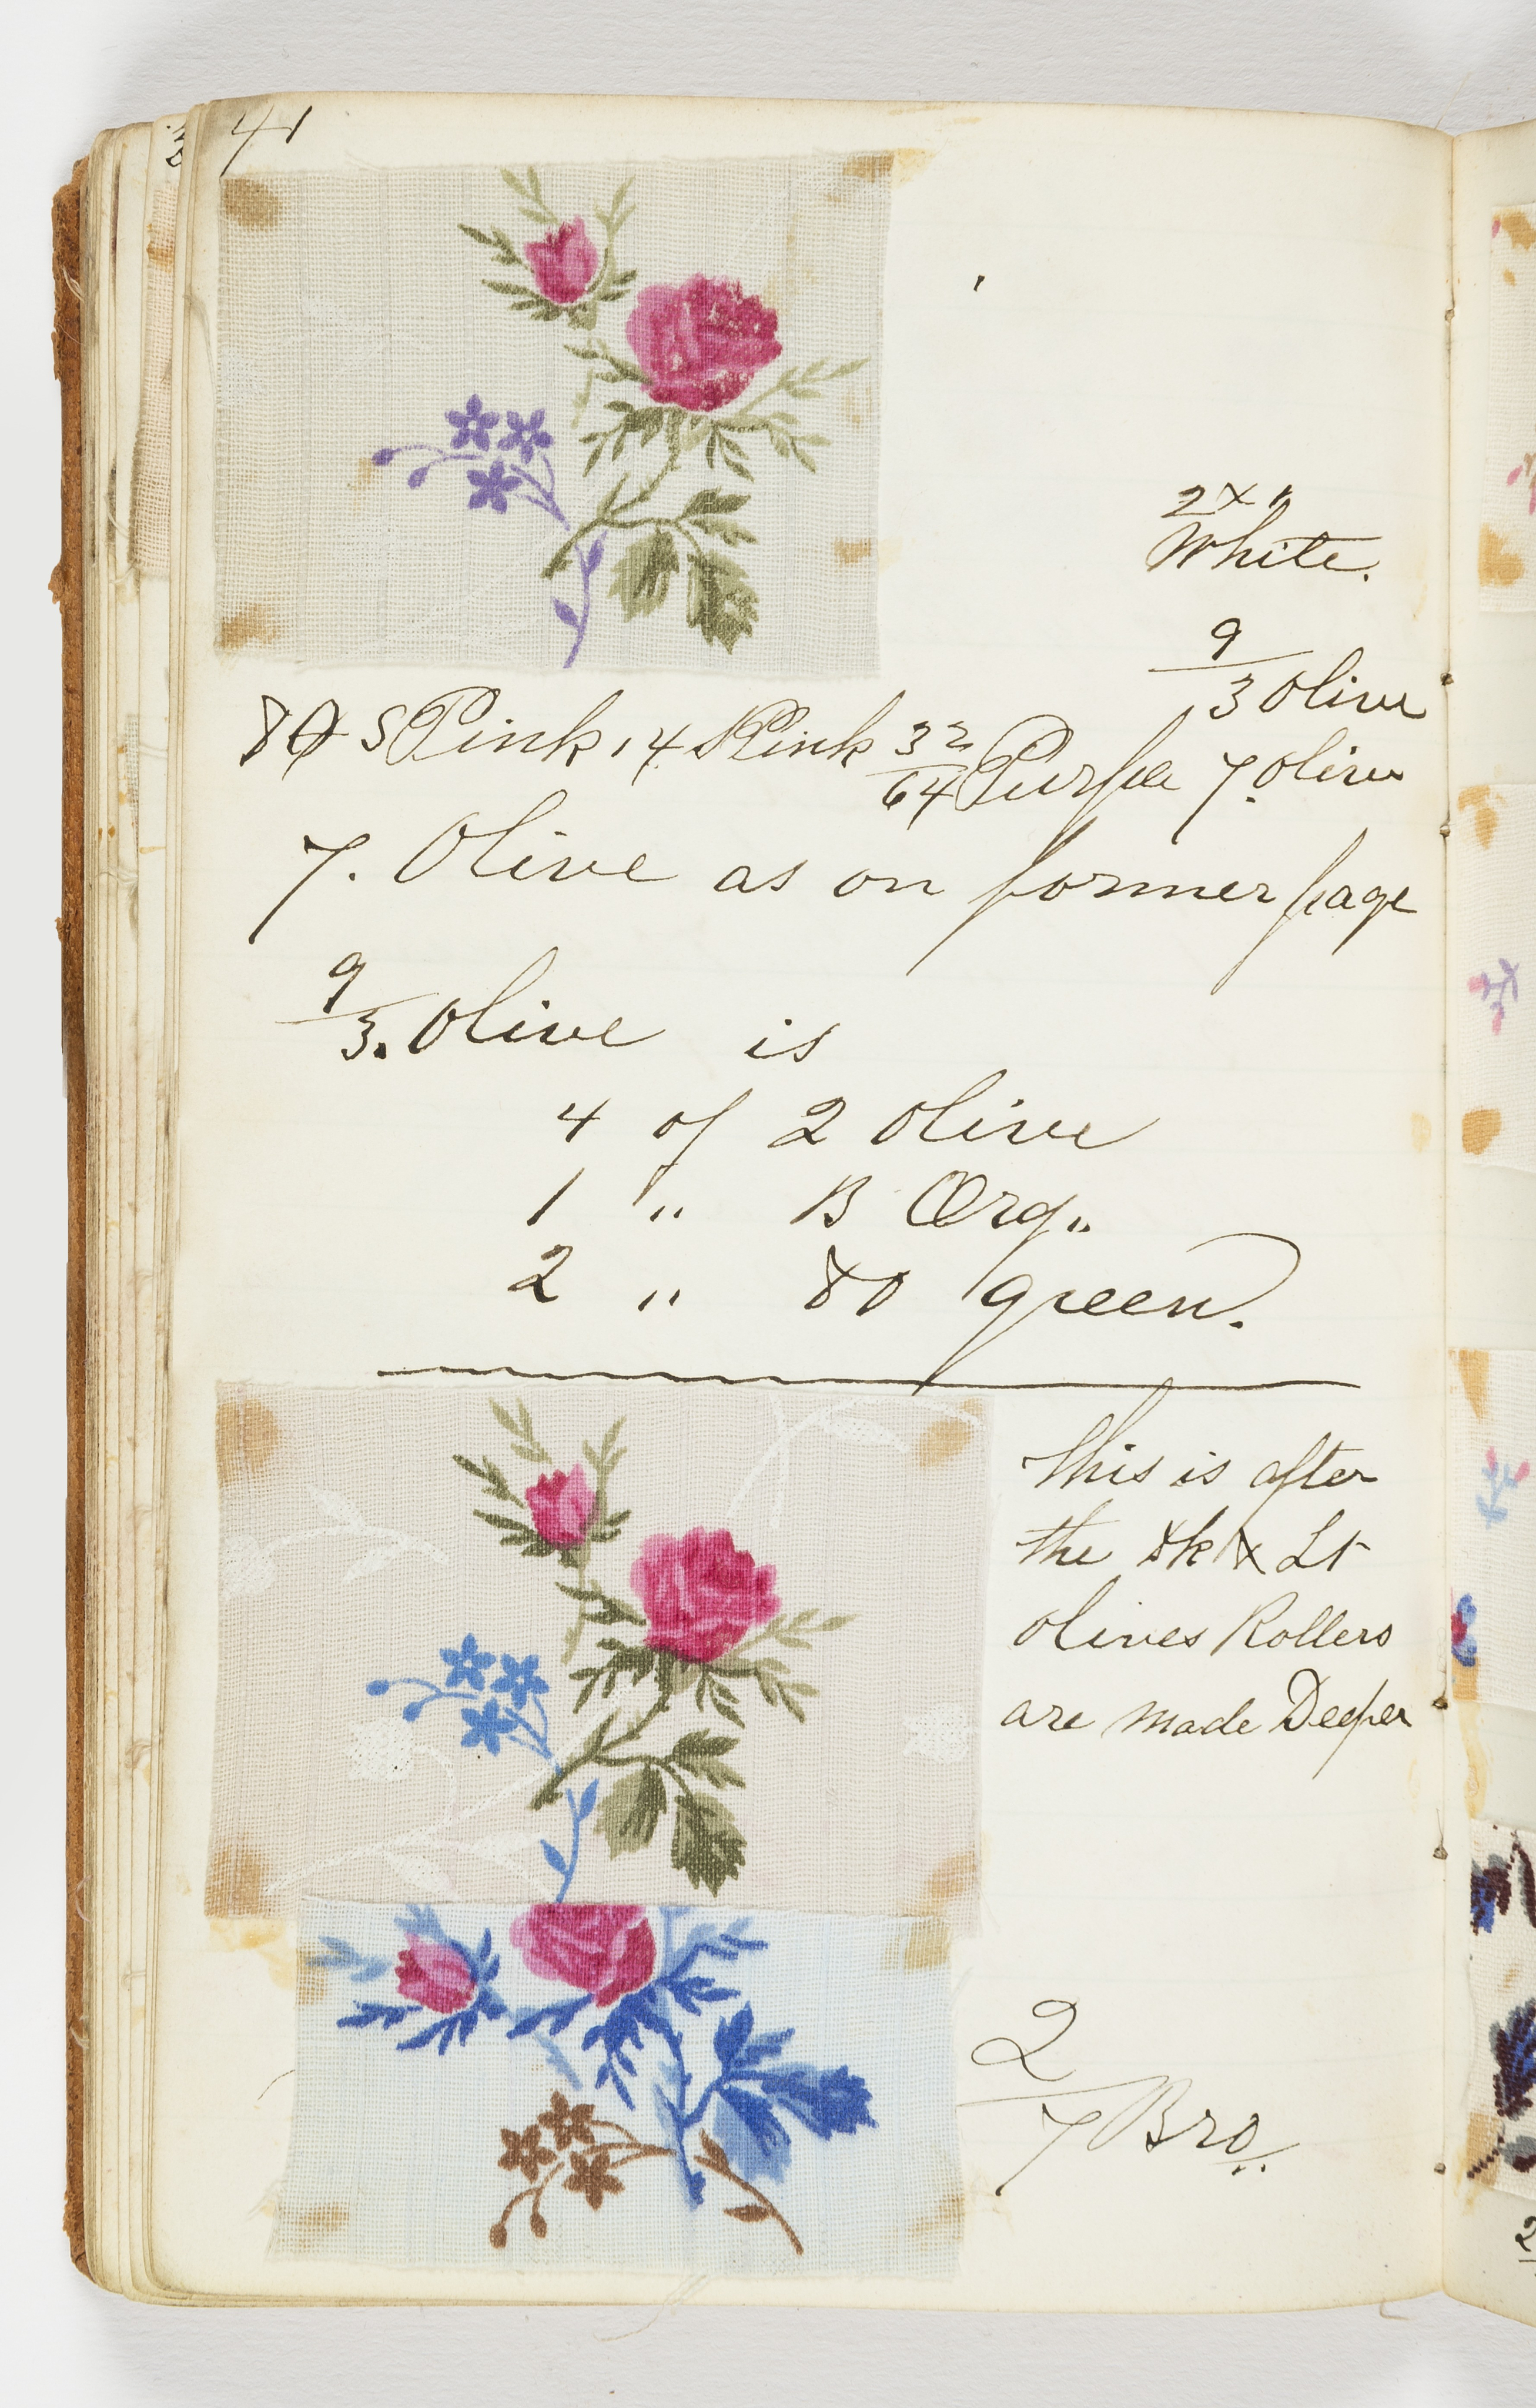 41
2 x "
White.
9/3 Olive
80 S Pink 14 S Pink 32/64 Purple 7. Olive
7. Olive as on former page
9/3. Olive is
4 of 2 Olive
1 " B Org"
2 " 80 green.
This is after
the dk & Lt
Olives Rollers
are made Deeper
2/7 Bro..
2